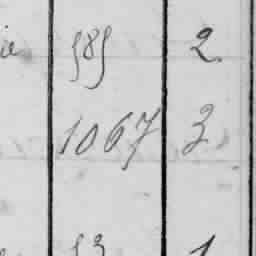 ie 585 2
1067 3
53 1